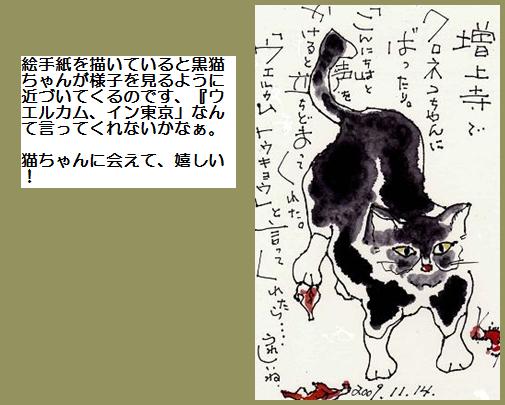 絵手紙を描いていると黒猫
ちゃんが様子を見るように
近づいてくるのです、『ウ
エルカム、イン東京」なん
て言ってくれないかなぁ。
猫ちゃんに会えて、嬉しい
！
増上寺で
クロネコちゃんに
ばったり。
「こんにちはと
声を
かけると立ちどまってくれた。
「ウエルカムトウキョウ」と言って
くれたら....
うれしいね
2009.11.14.